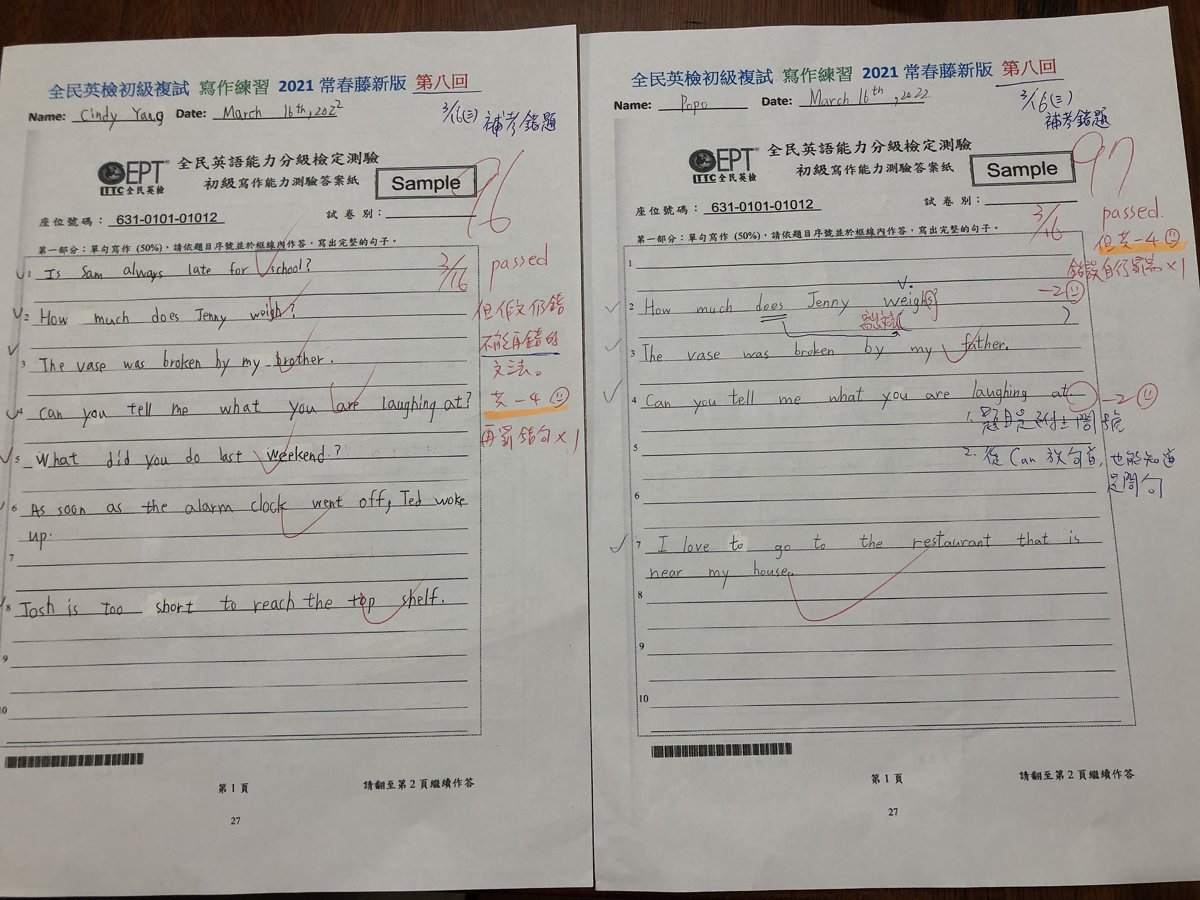 全民英檢初級複試 寫作練習 2021 常春藤新版 第八回
Name: Cindy Yang Date: March 16th, 2022
3/16(三)
補考錯題
96
GEPT 全民英語能力分級檢定測驗
LTTC 全民英檢 初級寫作能力測驗答案紙
Sample
座位號碼： 631-0101-01012 試卷別：
第一部分：單句寫作 (50%)，請依題目序號並於框線內作答，寫出完整的句子。
3/16
passed
但作文仍錯
不能再錯的
文法。
-4
再罰錯句×1
1 Is Sam always late for school?
2 How much does Jenny weigh?
3 The vase was broken by my brother.
4 Can you tell me what you are laughing at?
5 What did you do last weekend?
6 As soon as the alarm clock went off, Ted woke
up.
7
8 Josh is too short to reach the top shelf.
9
10
第1頁 請翻至第2頁繼續作答
27
全民英檢初級複試 寫作練習 2021 常春藤新版 第八回
Name: Popo Date: March 16th, 2022
3/16(三)
補考錯題
97
GEPT 全民英語能力分級檢定測驗
LTTC 全民英檢 初級寫作能力測驗答案紙
Sample
座位號碼： 631-0101-01012 試卷別：
第一部分：單句寫作 (50%)，請依題目序號並於框線內作答，寫出完整的句子。
3/16
passed.
-4
錯誤自行罰寫×1
1
2 How much does Jenny weighs?
V.
-2
3 The vase was broken by my father.
4 Can you tell me what you are laughing at.
-2
1. 題目是 問號
2. 從 Can 放句首, 也能知道
是問句
5
6
7 I love to go to the restaurant that is
near my house.
8
9
10
第1頁 請翻至第2頁繼續作答
27